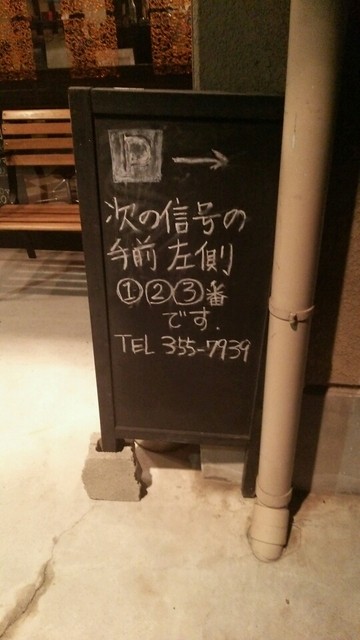 P →
次の信号の
手前 左側
①②③番
です.
TEL 355-7939